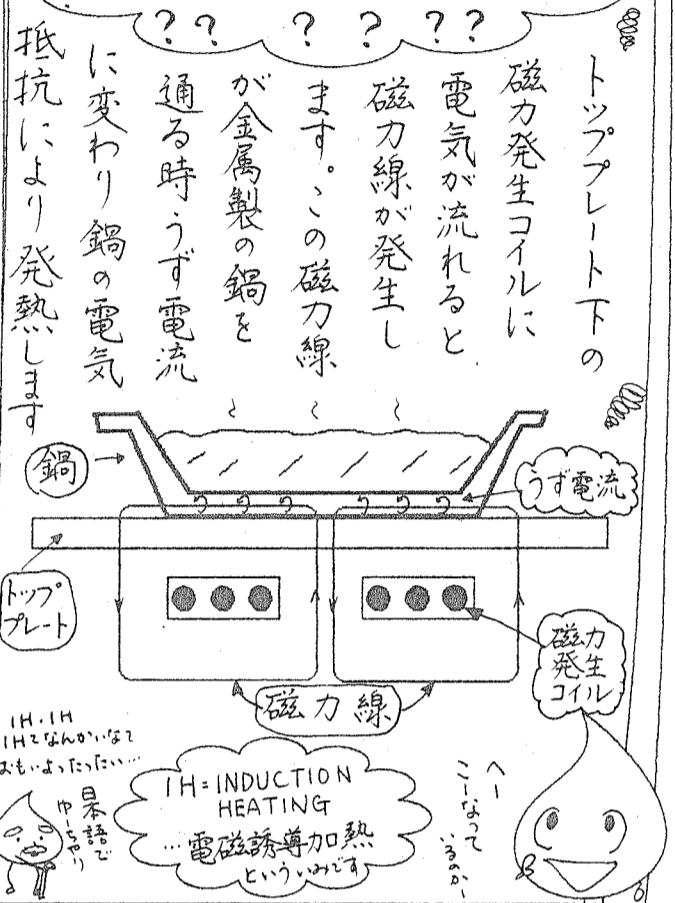 ? ? ? ? ? ?
トッププレート下の
磁力発生コイルに
電気が流れると、
磁力線が発生し
ます。この磁力線
が金属製の鍋を
通る時うず電流
に変わり鍋の電気
抵抗により発熱します
鍋
うず電流
トップ
プレート
磁力
発生
コイル
磁力線
IH.IH
IHてなんかいなて
おもいよったったい…
日本語で
ゆーちゃり
IH=INDUCTION
HEATING
…電磁誘導加熱
といういみです
へー
こーなって
いるのかー